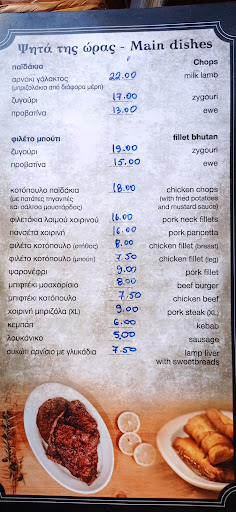 Ψητά της ώρας - Main dishes
παϊδάκια Chops
αρνάκι γάλακτος 22.00 milk lamb
(μπριζολάκια από διάφορα μέρη)
ζυγούρι 17.00 zygouri
προβατίνα 13.00 ewe
φιλέτο μπούτι fillet bhutan
ζυγούρι 19.00 zygouri
προβατίνα 15.00 ewe
κοτόπουλο παϊδάκια 18.00 chicken chops
(με πατάτες τηγανιτές (with fried potatoes
και σάλτσα μουστάρδας) and mustard sauce)
φιλετάκια λαιμού χοιρινού 16.00 pork neck fillets
πανσέτα χοιρινή 16.00 pork pancetta
φιλέτο κοτόπουλο (στήθος) 8.00 chicken fillet (breast)
φιλέτο κοτόπουλο (μπούτι) 7.50 chicken fillet (leg)
ψαρονέφρι 9.00 pork fillet
μπιφτέκι μοσχαρίσιο 8.00 beef burger
μπιφτέκι κοτόπουλο 7.50 chicken beef
χοιρινή μπριζόλα (XL) 9.00 pork steak (XL)
κεμπάπ 6.00 kebab
λουκάνικο 5.00 sausage
συκώτι αρνίσιο με γλυκάδια 7.50 lamp liver
with sweetbreads